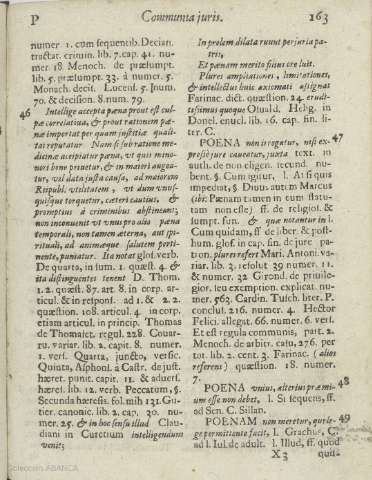 P Communia juris. 163
numer 1. cum sequentib. Decian.
tractat. crimin. lib. 7. cap. 41. nu-
mer. 18 Menoch. de præsumpt.
lib. 5. præsumpt. 33. à numer. 5.
Monach. decit. Lucens. 5. Inum.
70. & decision. 8. num. 79.
46 Intellige accepta pæna prout est cul-
pæ correlativa, & prout rationem pæ-
næ importat per quam justitiæ quali-
tas reputatur Nam si sub ratione me-
dicinæ accipiatur pæna, vt quis mino-
ri bono privetur, & in maiori augea-
tur, vel data justa causa, ad maiorem
Reipubl. vtilitatem, vt dum vnus-
quisque torquetur, cæteri cautius, &
promptius à criminibus abstineant;
non inconvenit vt vnus pro alio pæna
temporali, non tamen æterna, aut spi-
rituali, ad animæque salutem perti-
nente, puniatur. Ita notat glos. verb.
De quarta, in sum. 1. quæst. 4. &
ita distinguentes tenent D. Thom.
1. 2. quæst. 87. art. 8. in corp. ar-
ticul. & in respons. ad 1. & 2. 2.
quæstion. 108. articul. 4. in corp.
etiam articul. in princip. Thomas
de Thomaset. regul. 228. Couar-
ru. variar. lib. 2. capit. 8. numer.
1. vers. Quarta, juncto, versic.
Quinta, Alphons. à Castr. de just.
hæret. punit. capit. 11. & adversf.
hæres. lib. 12. verb. Peccatum, §.
Secunda hæresis. fol. mih 131. Gu-
tier. canonic. lib. 2. cap. 30. nu-
mer. 25. & in hoc sensu illud Clau-
diani in Curetium intelligendum
venit;
In prolem dilata ruunt perjuria pa-
tris,
Et pænam merito filius ore luit.
Plures ampliationes, limitationes,
& intellectus huic axiomati assignat
Farinac. dict. quæstion. 24 erudi-
tissimus quoque Osuald. Helig. in
Donel. enucl. lib. 16. cap. fin. lit-
ter. C.
POENA non irrogatur, nisi ex- 47
presse jure caveatur, juxta text. in
auth. de non eligen. secund. nu-
bent. §. Cum igitur, l. At si quis
impeduat, §. Divus autem Marcus
(ibi: Pænam tamen in eum statu-
tam non esse) ff. de religios. &
sumpt. fun. & quæ notantur in l.
Cum quidam, ff. de liber. & post-
hum. glos. in cap. fin. de jure pa-
tron. plures refert Mari. Antoni. va-
riar. lib. 3. resolut 39. numer. 11.
& numer. 32. Girond. de privile-
gior. seu exemption. explicat. nu-
mer. 563. Cardin. Tusch. liter. P.
conclus. 216. numer. 4. Hector
Felici. allegat. 66. numer. 6. vers.
Et est regula communis, part. 2.
Menoch. de arbit. casu, 276. per
tot. lib. 2. cent. 3. Farinac. (alios
referens) quæstion. 18. numer.
7.
POENA vnius, alterius præmi- 48
um esse non debet, l. Si sequens, ff.
ad Sen. C. Sillan.
POENAM non meretur, qui le- 49
ge permittente facit, l. Gracchus, C.
ad l. Iul. de adult. l. Illud, ff. quod
X 3 quis-
Colección ABANCA